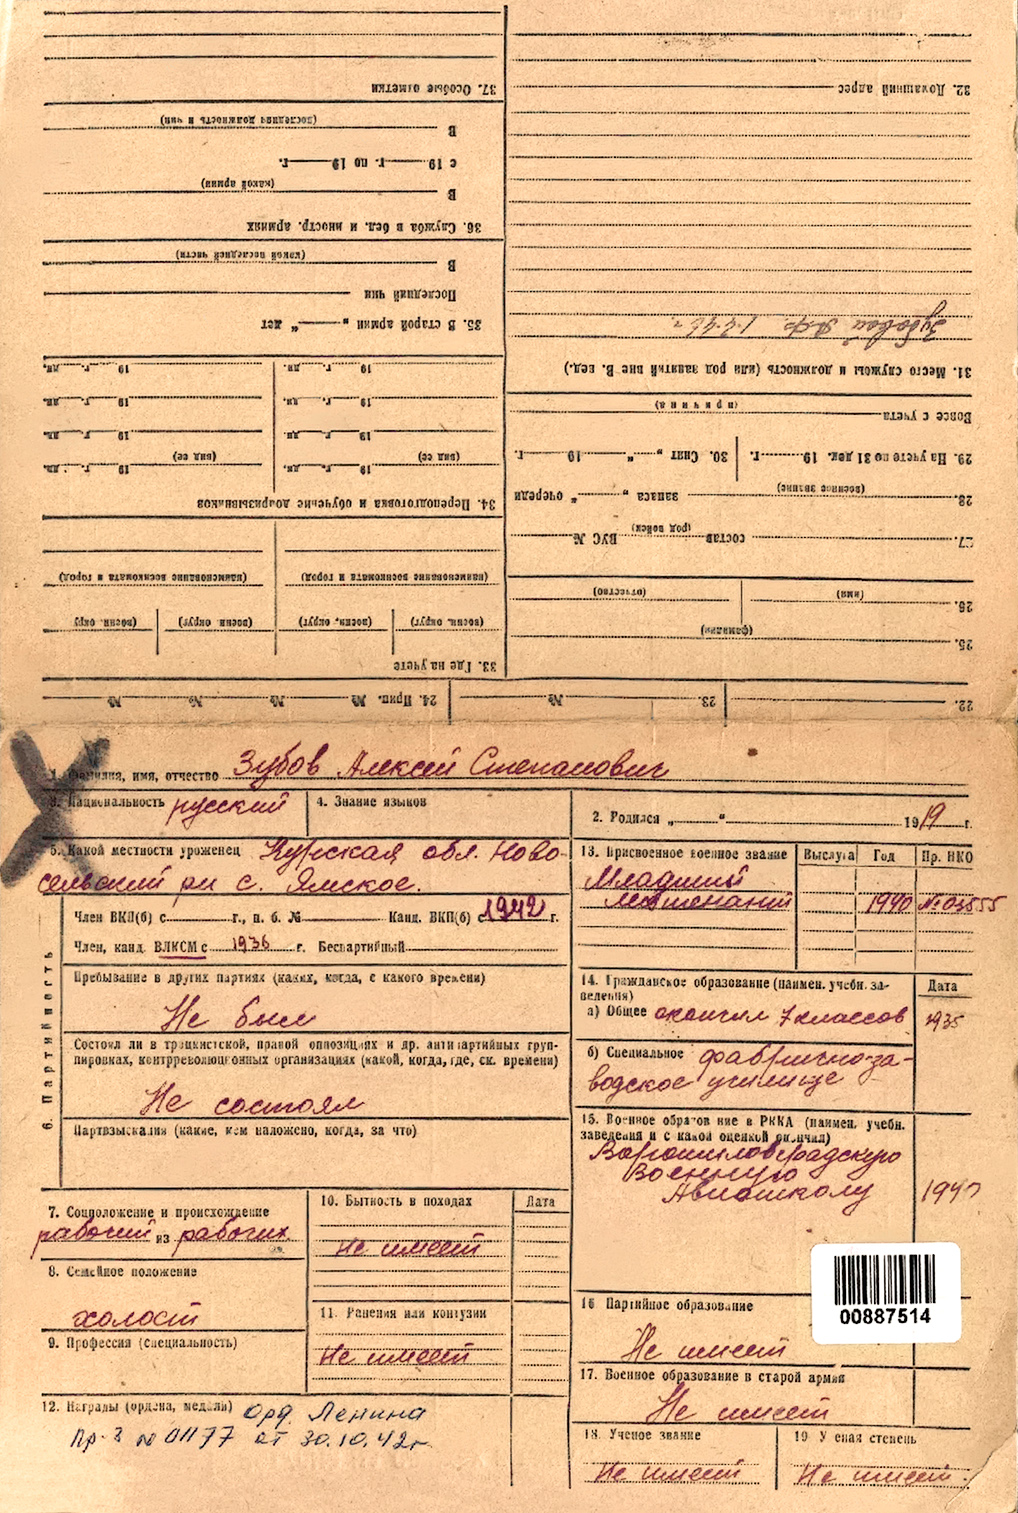 37. Особые отметки
(последняя должность и чин)
В
с 19 г. по 19 г.
(какой армии)
В
36. Служба в бел. и иностр. армиях
(какой последней части)
В
Последний чин
35. В старой армии „ “ лет
19 г. дн. 19 г. дн.
19 г. дн. 19 г. дн.
19 г. дн. 19 г. дн.
(вид ее) (вид ее)
19 г. дн. 19 г. дн.
34. Переподготовка и обучение допризывников
(наименование военкомата и город) (наименование военкомата и город)
(воен. округ) (воен. округ) (воен. округ) (воен. окру
33. Где на учете
32. Домашний адрес
Зубовой 1.2.46 г.
31. Место службы и должность (или род занятий вне В. вед.)
(причина)
Вовсе с учета
29. На учете по 31 дек. 19 г. 30. Снят „ “ 19 г.
(военное звание)
28. запаса „ “ очереди
(род войск)
27. состав ВУС №
(имя) (отчество)
26.
(фамилия)
25.
22. 23. № 24. Прип. № № № №
1. Фамилия, имя, отчество Зубов Алексей Степанович
3. Национальность русский
4. Знание языков
2. Родился „ “ 1919 г.
5. Какой местности уроженец Курская обл. Ново-
сельский рн с. Ямское.
6. Партийность
Член ВКП(б) с г., п. б. № Канд. ВКП(б) с 1942 г.
Член, канд. ВЛКСМ с 1936 г. Беспартийный
Пребывание в других партиях (каких, когда, с какого времени)
Не был
Состоял ли в троцкистской, правой оппозициях и др. антипартийных груп-
пировках, контрреволюционных организациях (какой, когда, где, ск. времени)
Не состоял
Партвзыскания (какие, кем наложено, когда, за что)
7. Соцположение и происхождение
рабочий из рабочих
8. Семейное положение
холост
9. Профессия (специальность)
10. Бытность в походах Дата
Не имеет
11. Ранения или контузии
Не имеет
12. Награды (ордена, медали) Орд. Ленина
Пр. № 01177 от 30.10.42 г.
13. Присвоенное военное звание Выслуга Год Пр. НКО
Младший
лейтенант 1940 № 03555
14. Гражданское образование (наимен. учебн. за-
ведения) Дата
а) Общее окончил 7 классов 1935
б) Специальное фабрично-за-
водское училище
15. Военное образование в РККА (наимен. учебн.
заведения и с какой оценкой окончил)
Ворошиловградскую
Военную
Авиашколу 1940
00887514
16 Партийное образование
Не имеет
17. Военное образование в старой армии
Не имеет
18. Ученое звание
Не имеет
19 Ученая степень
Не имеет